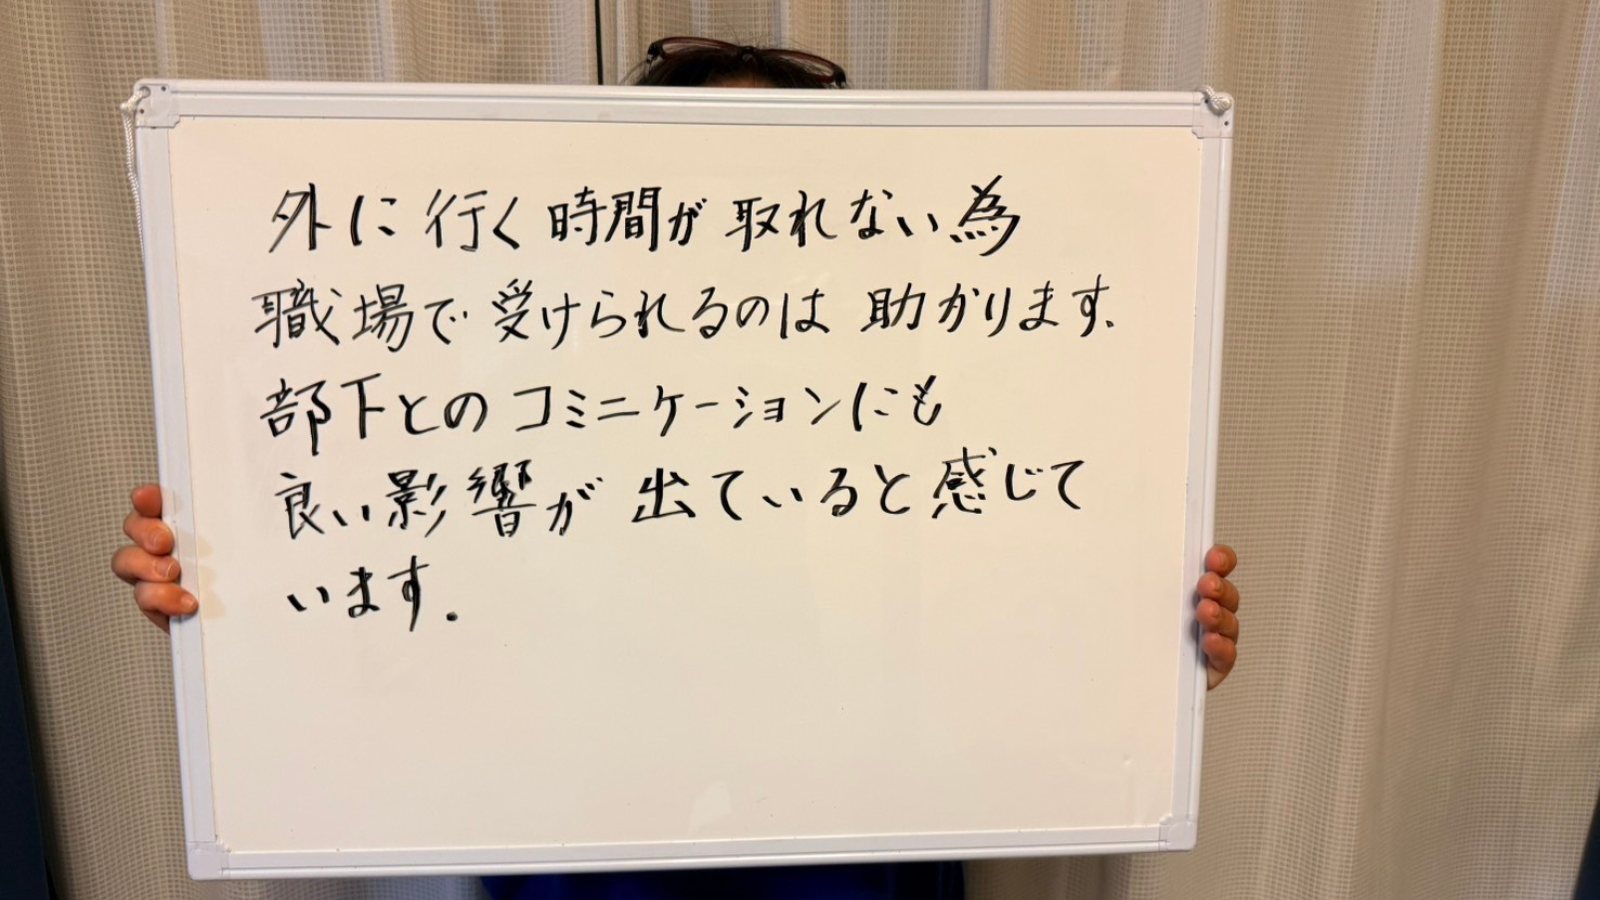 外に行く時間が取れない為
職場で受けられるのは助かります.
部下とのコミニケーションにも
良い影響が出ていると感じて
います.